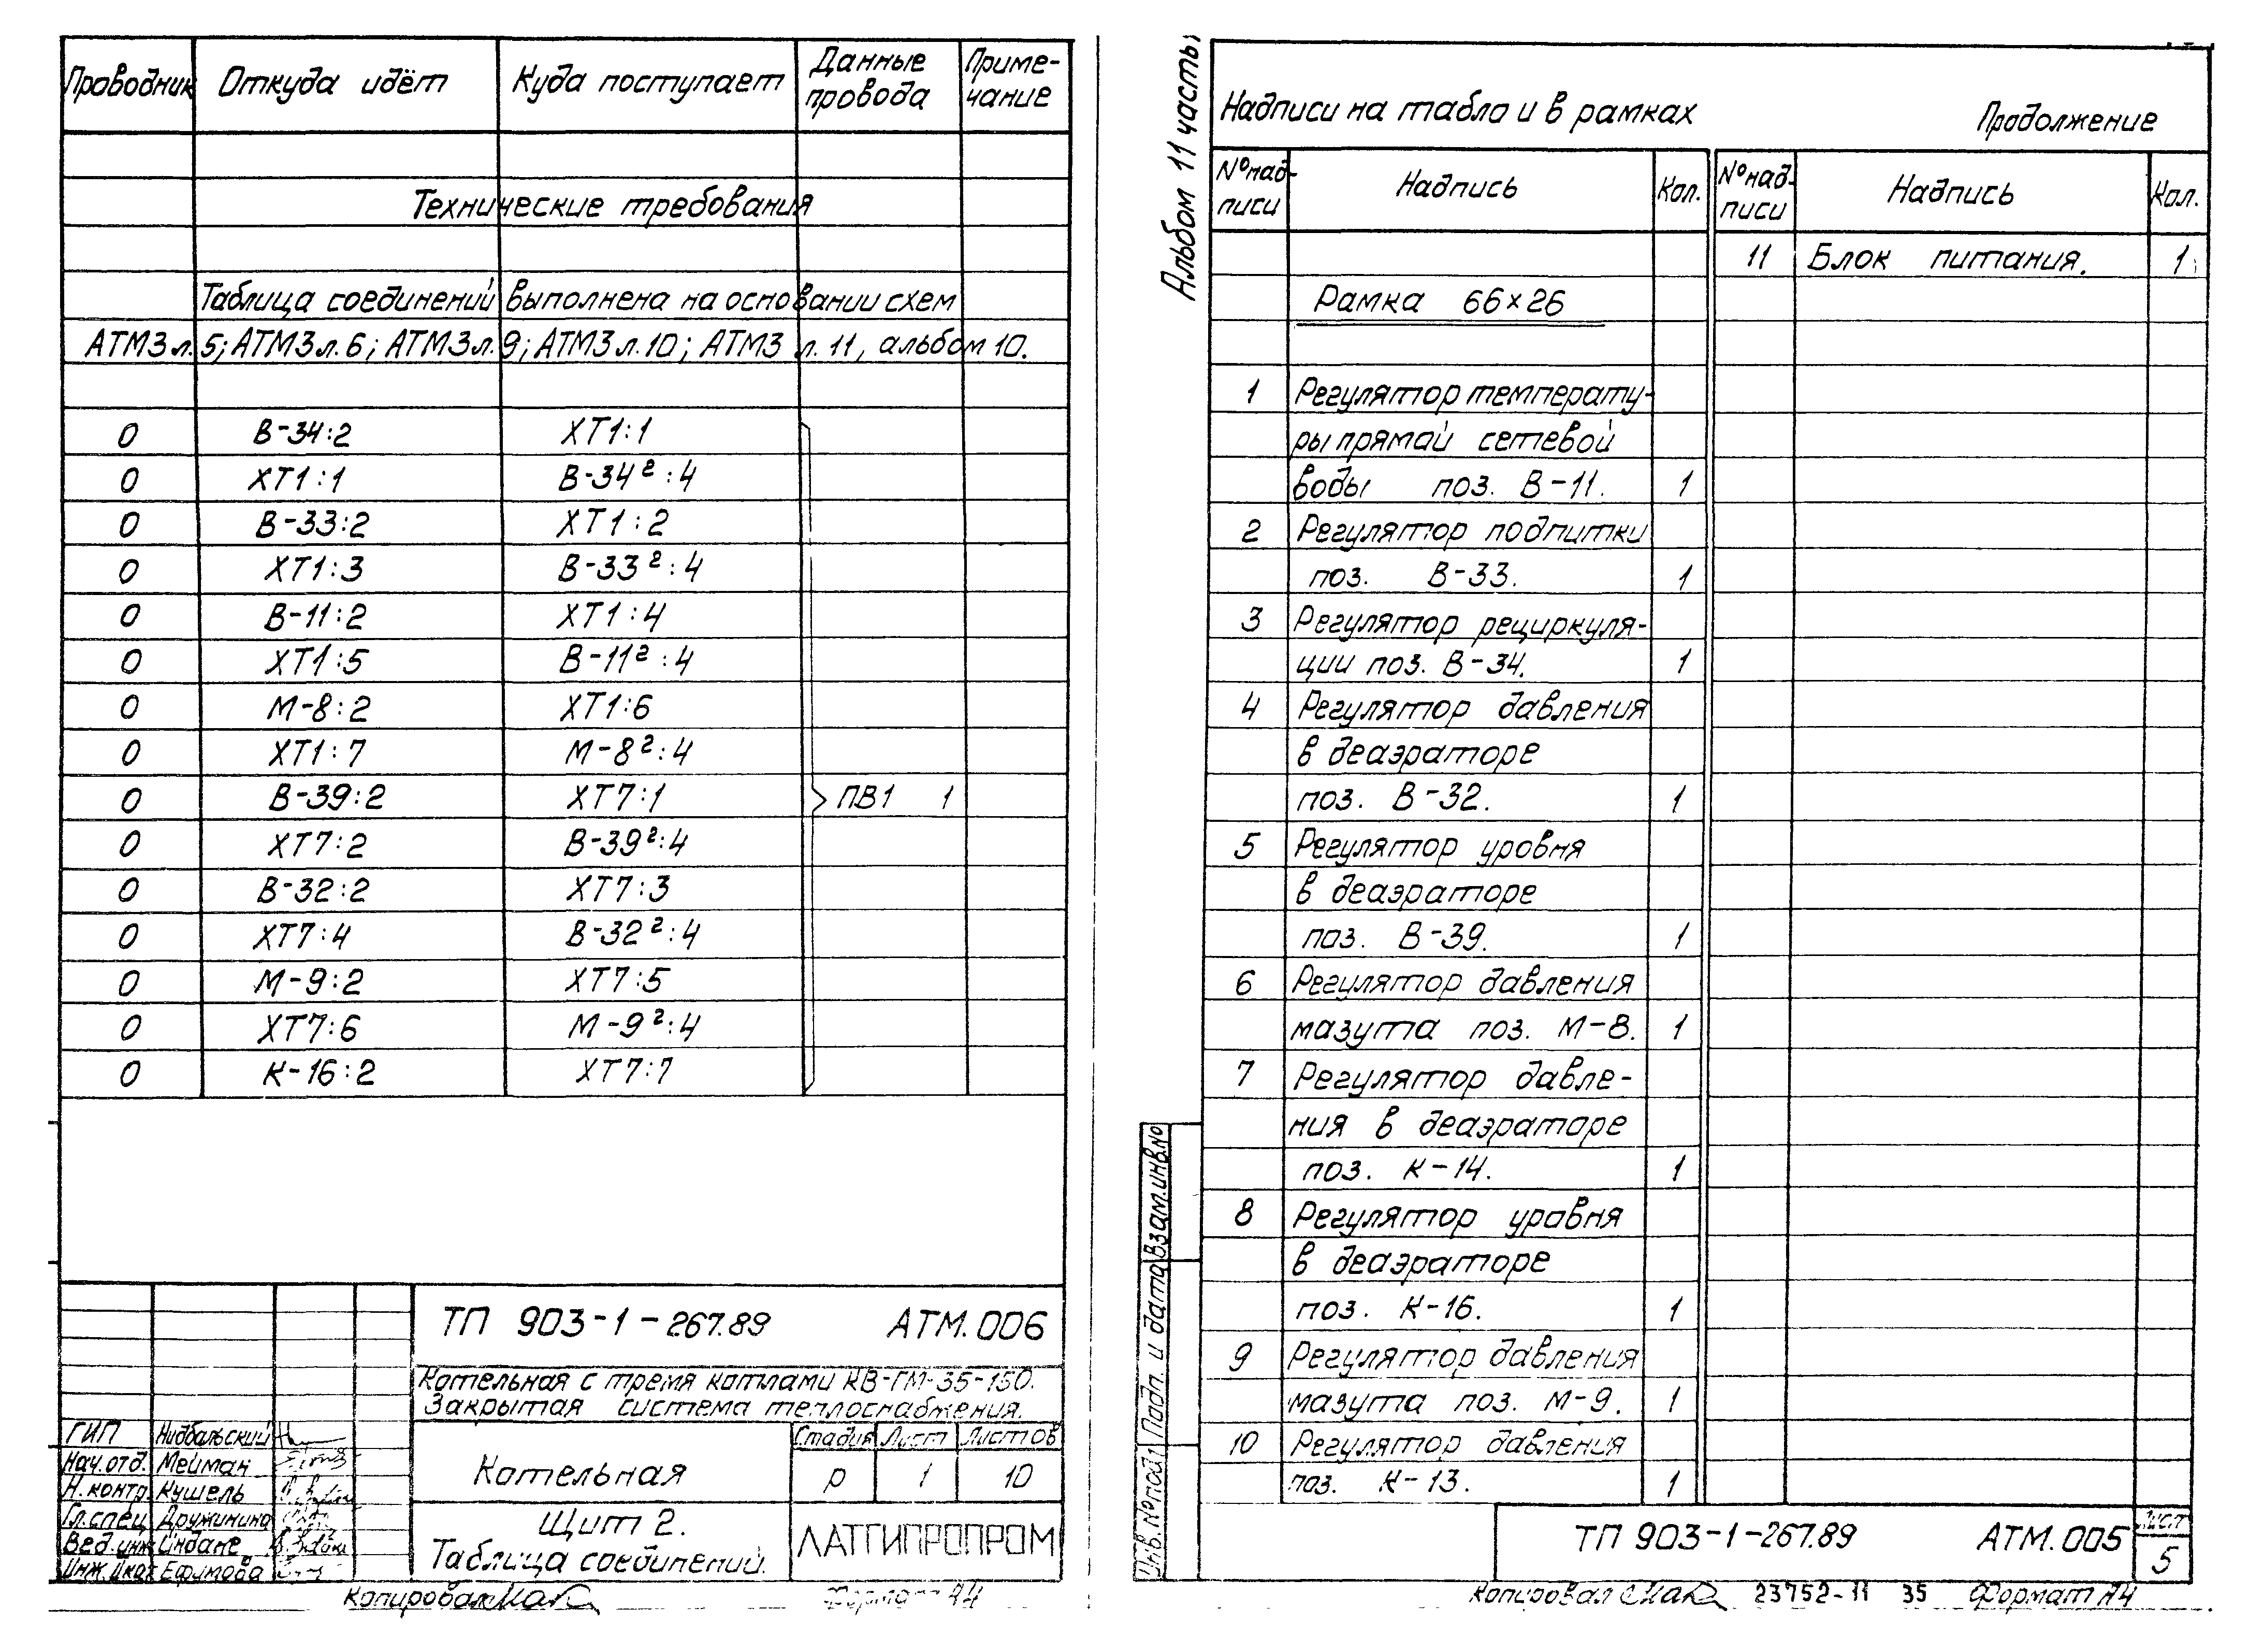 Проводник Откуда идёт Куда поступает Данные провода Примечание
Технические требования
Таблица соединений выполнена на основании схем
АТМ3 л. 5; АТМ3 л. 6; АТМ3 л. 9; АТМ3 л. 10; АТМ3 л. 11, альбом 10.
0 В-34:2 ХТ1:1
0 ХТ1:1 В-34²:4
0 В-33:2 ХТ1:2
0 ХТ1:3 В-33²:4
0 В-11:2 ХТ1:4
0 ХТ1:5 В-11²:4
0 М-8:2 ХТ1:6
0 ХТ1:7 М-8²:4
0 В-39:2 ХТ7:1 ПВ1 1
0 ХТ7:2 В-39²:4
0 В-32:2 ХТ7:3
0 ХТ7:4 В-32²:4
0 М-9:2 ХТ7:5
0 ХТ7:6 М-9²:4
0 К-16:2 ХТ7:7
ТП 903-1-267.89 АТМ.006
Котельная с тремя котлами КВ-ГМ-35-150.
Закрытая система теплоснабжения.
ГИП Нидбальский
Нач.отд. Мейман
Н.контр. Кушель
Гл.спец. Дружинина
Вед.инж. Индане
Инж. Ефимова
Котельная
Стадия Лист Листов
Р 1 10
Щит 2.
Таблица соединений.
ЛАТГИПРОПРОМ
Копировал
Формат А4
Альбом 11 часть
Надписи на табло и в рамках Продолжение
№ над-
писи Надпись Кол. № над-
писи Надпись Кол.
11 Блок питания. 1
Рамка 66×26
1 Регулятор температу-
ры прямой сетевой
воды поз. В-11. 1
2 Регулятор подпитки
поз. В-33. 1
3 Регулятор рециркуля-
ции поз. В-34. 1
4 Регулятор давления
в деаэраторе
поз. В-32. 1
5 Регулятор уровня
в деаэраторе
поз. В-39. 1
6 Регулятор давления
мазута поз. М-8. 1
7 Регулятор давле-
ния в деаэраторе
поз. К-14. 1
8 Регулятор уровня
в деаэраторе
поз. К-16. 1
9 Регулятор давления
мазута поз. М-9. 1
10 Регулятор давления
поз. К-13. 1
Взам.инв.№
Подп. и дата
Инв.№ подл
ТП 903-1-267.89 АТМ.005
Лист
5
Копировал 23752-11 35 Формат А4